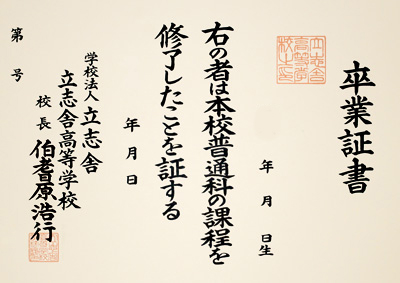 卒業証書
年 月 日生
右の者は本校普通科の課程を
修了したことを証する
年 月 日
学校法人 立志舎
立志舎高等学校
校長 伯耆原浩行
第 号